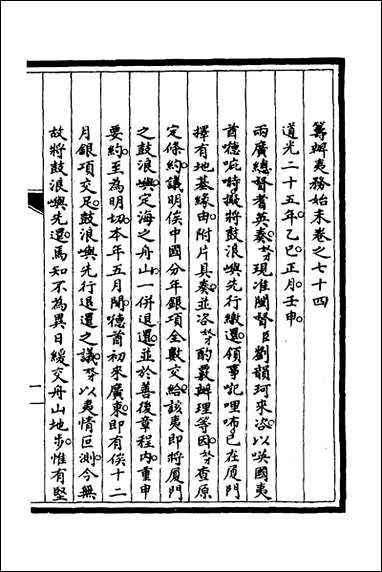 籌辦夷務始末卷之七十四
道光二十五年乙巳正月壬申
兩廣總督耆英奏。奴才現准閩督臣劉韻珂來咨。以㗆國夷
酋㗐呢時擬將鼓浪嶼先行繳還。領事記哩布。已在廈門
擇有地基緣由。附片具奏。並咨奴才酌覈辦理等因。奴才查原
定條約。議明俟中國分年銀項全數交給。該夷即將廈門
之鼓浪嶼。定海之舟山。一併退還。並於善後章程內。重申
要約。至為明切。本年五月間。㗐酋初來廣東。即有俟十二
月銀項交足。鼓浪嶼先行退還之議。奴才以夷情叵測。今無
故將鼓浪嶼先還。焉知不為異日緩交舟山地步。惟有堅
一